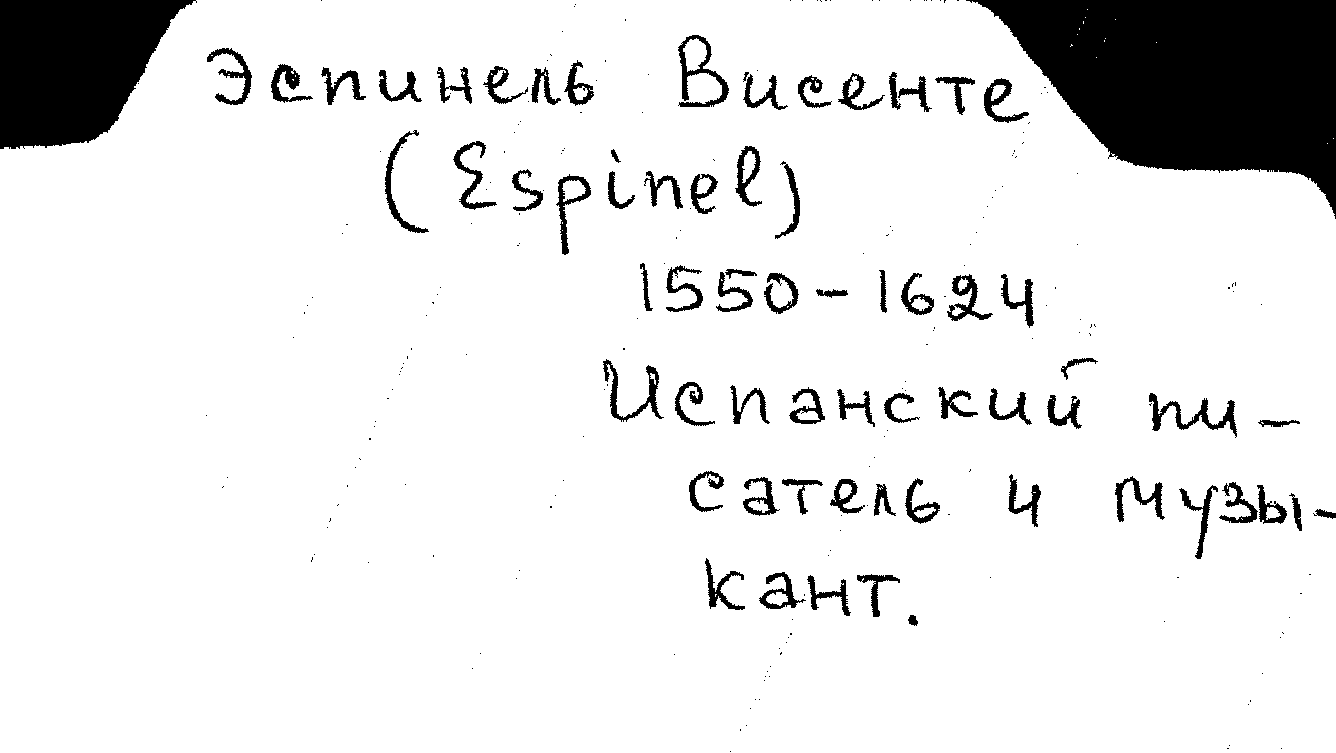 Эспинель Висенте
(Espinel)
1550-1624
Испанский пи-
сатель и музы-
кант.